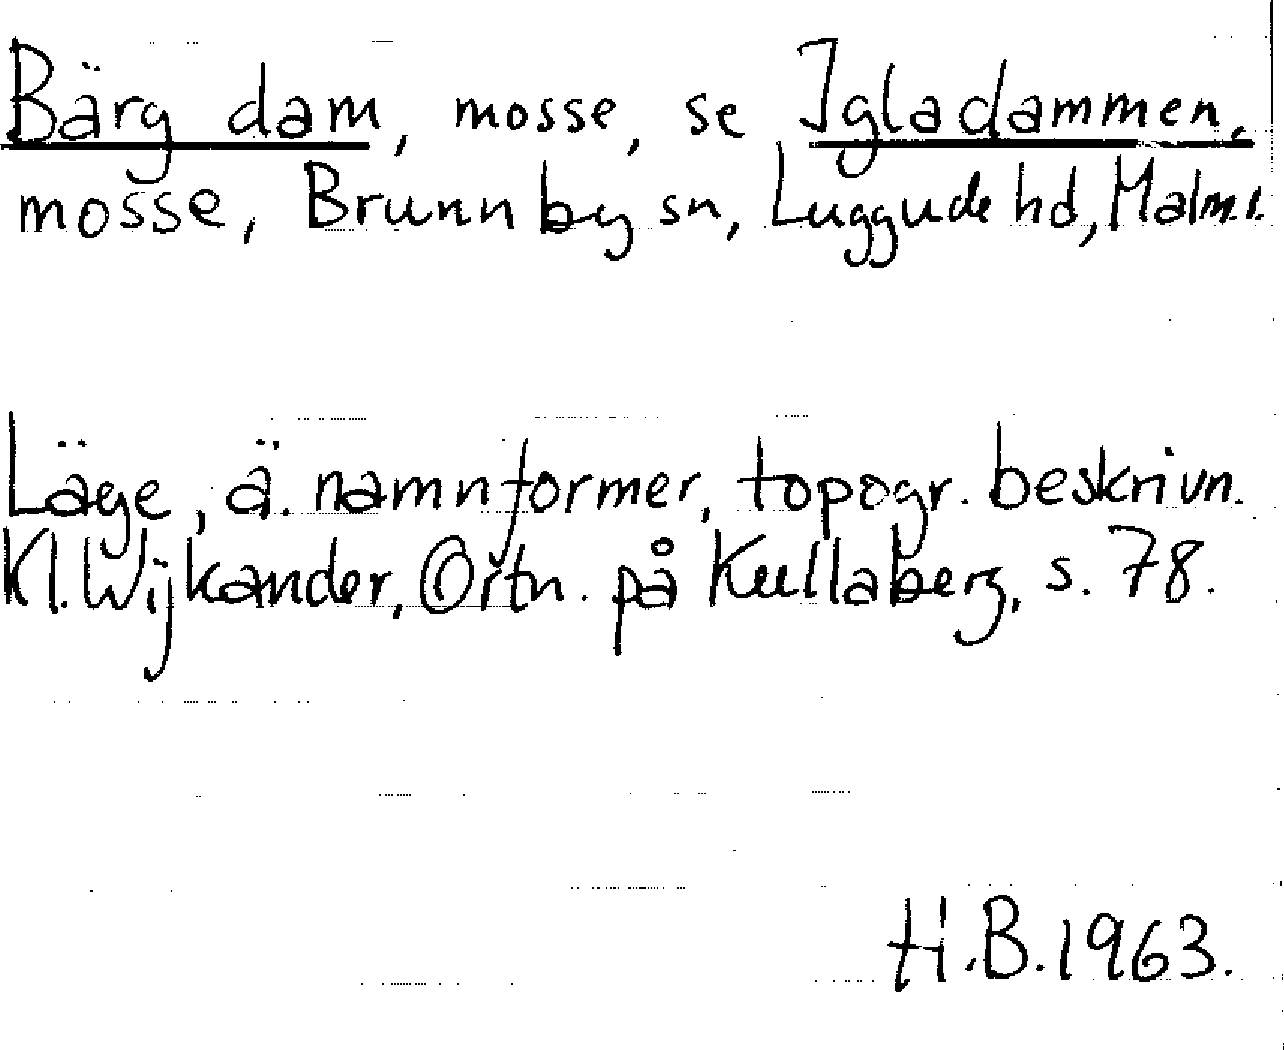 Bärg dam, mosse, se Igladammen,
mosse, Brunnby sn, Luggude hd, Malm.l.
Läge, ä. namnformer, topogr. beskrivn.
Kl. Wijkander, Ortn. på Kullaberg, s. 78.
H.B. 1963.